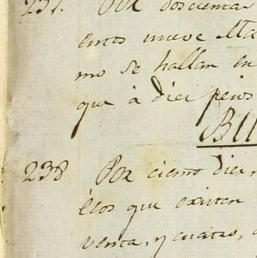 237. Por doscientas
entos nueve Ma
mo se hallan en
que à diez pesos
BU
238 Por ciento diez,
éllos que existen
venta, y cuatro,